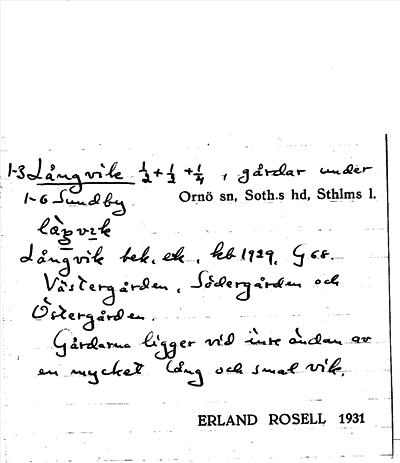 1-3 Långvik ½ + ½ + ¼, gårdar under
1-6 Sundby. Ornö sn, Soth.s hd, Sthlms l.
Långvik bek. ek. kb 1929, G 68.
Västergården, Södergården och
Östergården.
Gårdarna ligger vid inre ändan av
en mycket lång och smal vik.
ERLAND ROSELL 1931